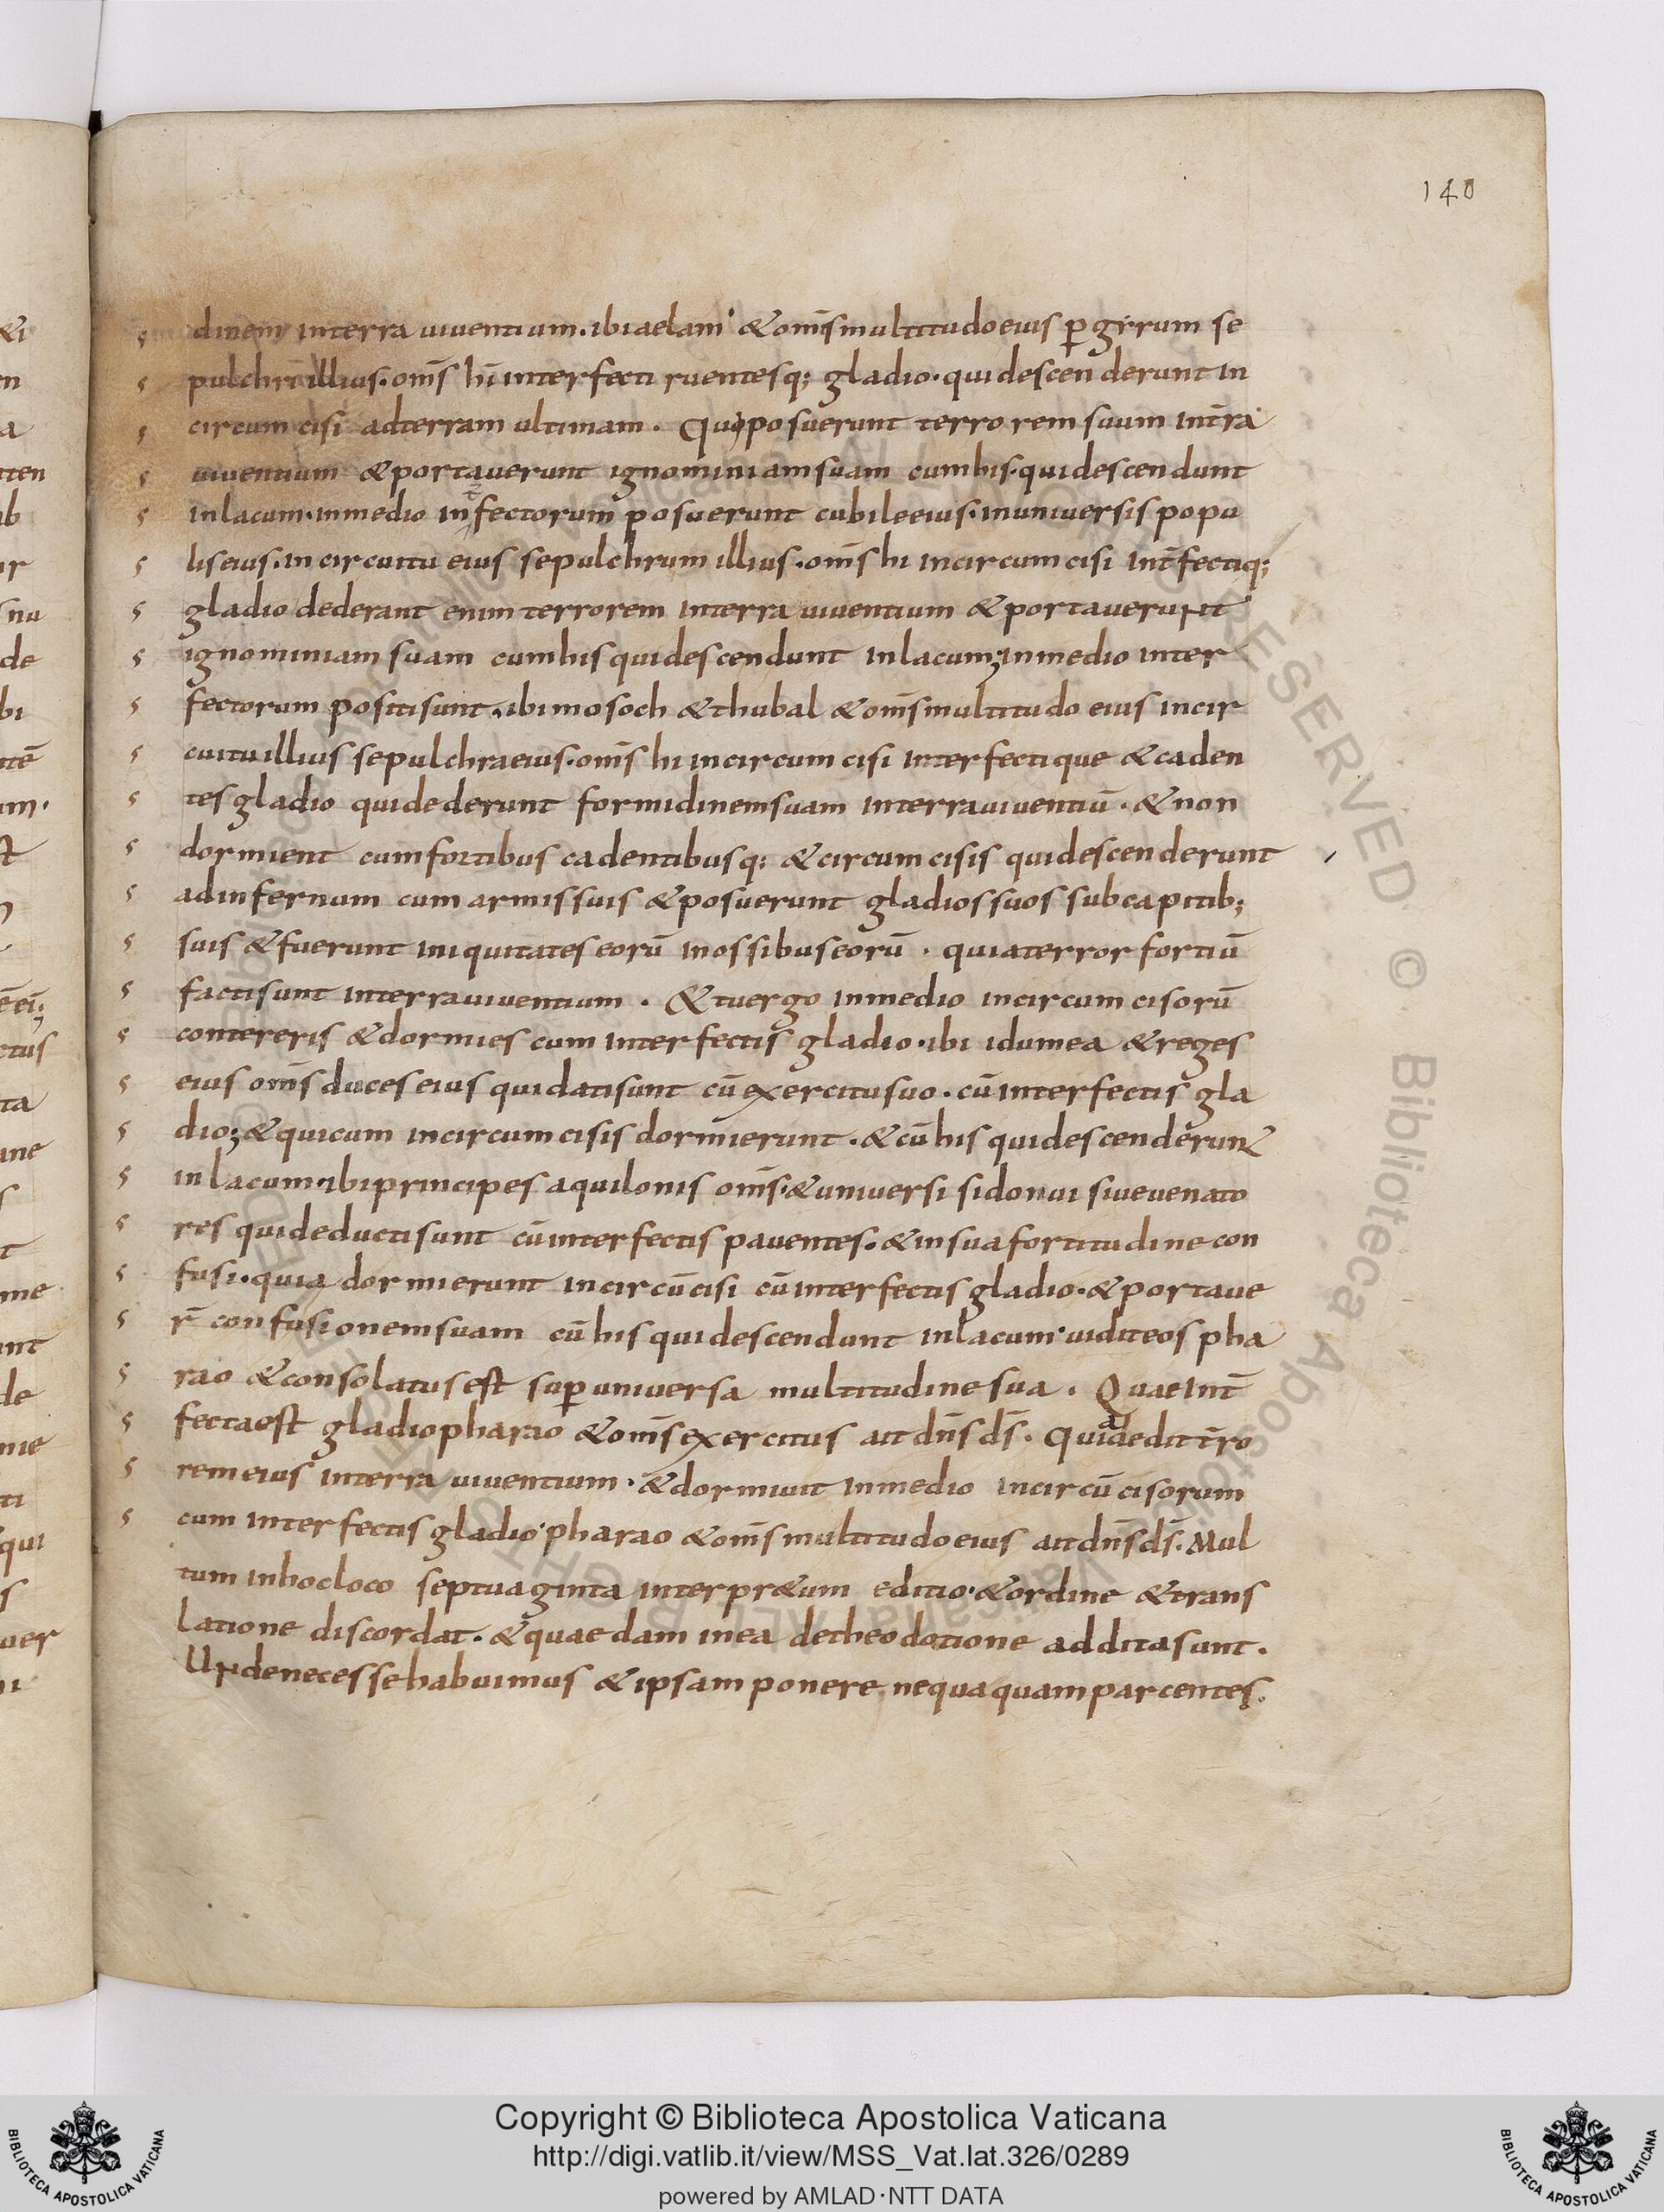 140
dinem interra uiuentium. ibiaelam. &om̅s multitudoeius p̱ gẏrum se
pulchri illius. om̅s hi interfecti ruentesq; gladio. qui descenderunt in
circumcisi adterram ultimam. Quiposuerunt terrorem suum int̅ra
uiuentium &portauerunt ignominiamsuam cumhis. quidescendunt
inlacum. inmedio int̅fectorum posuerunt cubileeius. inuniuersis popu
liseius. in circuitu eius sepulchrum illius. om̅s hi incircumcisi int̅fectiq;
gladio dederant enim terrorem interra uiuentium &portauerunt
ignominiam suam cumhis quidescendunt inlacum; inmedio inter
fectorum positisunt. ibi mosoch &thubal &om̅smultitudo eius incir
cuituillius sepulchraeius. om̅s hi incircumcisi interfectique &caden
tes gladio quidederunt formidinemsuam interrauiuentiu̅. &non
dormient cumfortibus cadentibusq; &circumcisis quidescenderunt
adinfernum cum armissuis &posuerunt gladiossuos subcapitib;
suis &fuerunt iniquitates eoru̅ inossibuseoru̅. quiaterror fortiu̅
factisunt interrauiuentium. &tuergo inmedio incircumcisoru̅
contereris &dormies cum interfectis gladio. ibi idumea &reges
eius om̅s duces eius quidatisunt cu̅ exercitusuo. cu̅interfectis gla
dio; &quicum incircumcisis dormierunt. &cu̅his quidescenderunt
inlacum. ibiprincipes aquilonis om̅s. &uniuersi sidonii siueuenato
res quideductisunt cu̅interfectis pauentes. &insuafortitudine con
fusi. quia dormierunt incircu̅cisi cu̅interfectis gladio. &portaue
r̅ confusionemsuam cu̅his quidescendunt inlacum. uiditeos pha
rao &consolatusest sup̱ uniuersa multitudinesua. Quaeint̅
fectaest gladiopharao &om̅s exercitus ait dn̅s ds̅. Quiadedit t̅ro
remeius interra uiuentium. &dormiuit inmedio incircu̅cisorum
cum interfectis gladio. pharao &om̅s multitudoeius ait dn̅s ds̅. Mul
tum inhocloco septuaginta interpr&um editio. &ordine &trans
latione discordat. &quaedam inea detheodotione additasunt.
Undenecessehabuimus &ipsam ponere nequaquamparcentes.
Copyright © Biblioteca Apostolica Vaticana
http://digi.vatlib.it/view/MSS_Vat.lat.326/0289
powered by AMLAD·NTT DATA
BIBLIOTECA APOSTOLICA VATICANA
BIBLIOTECA APOSTOLICA VATICANA